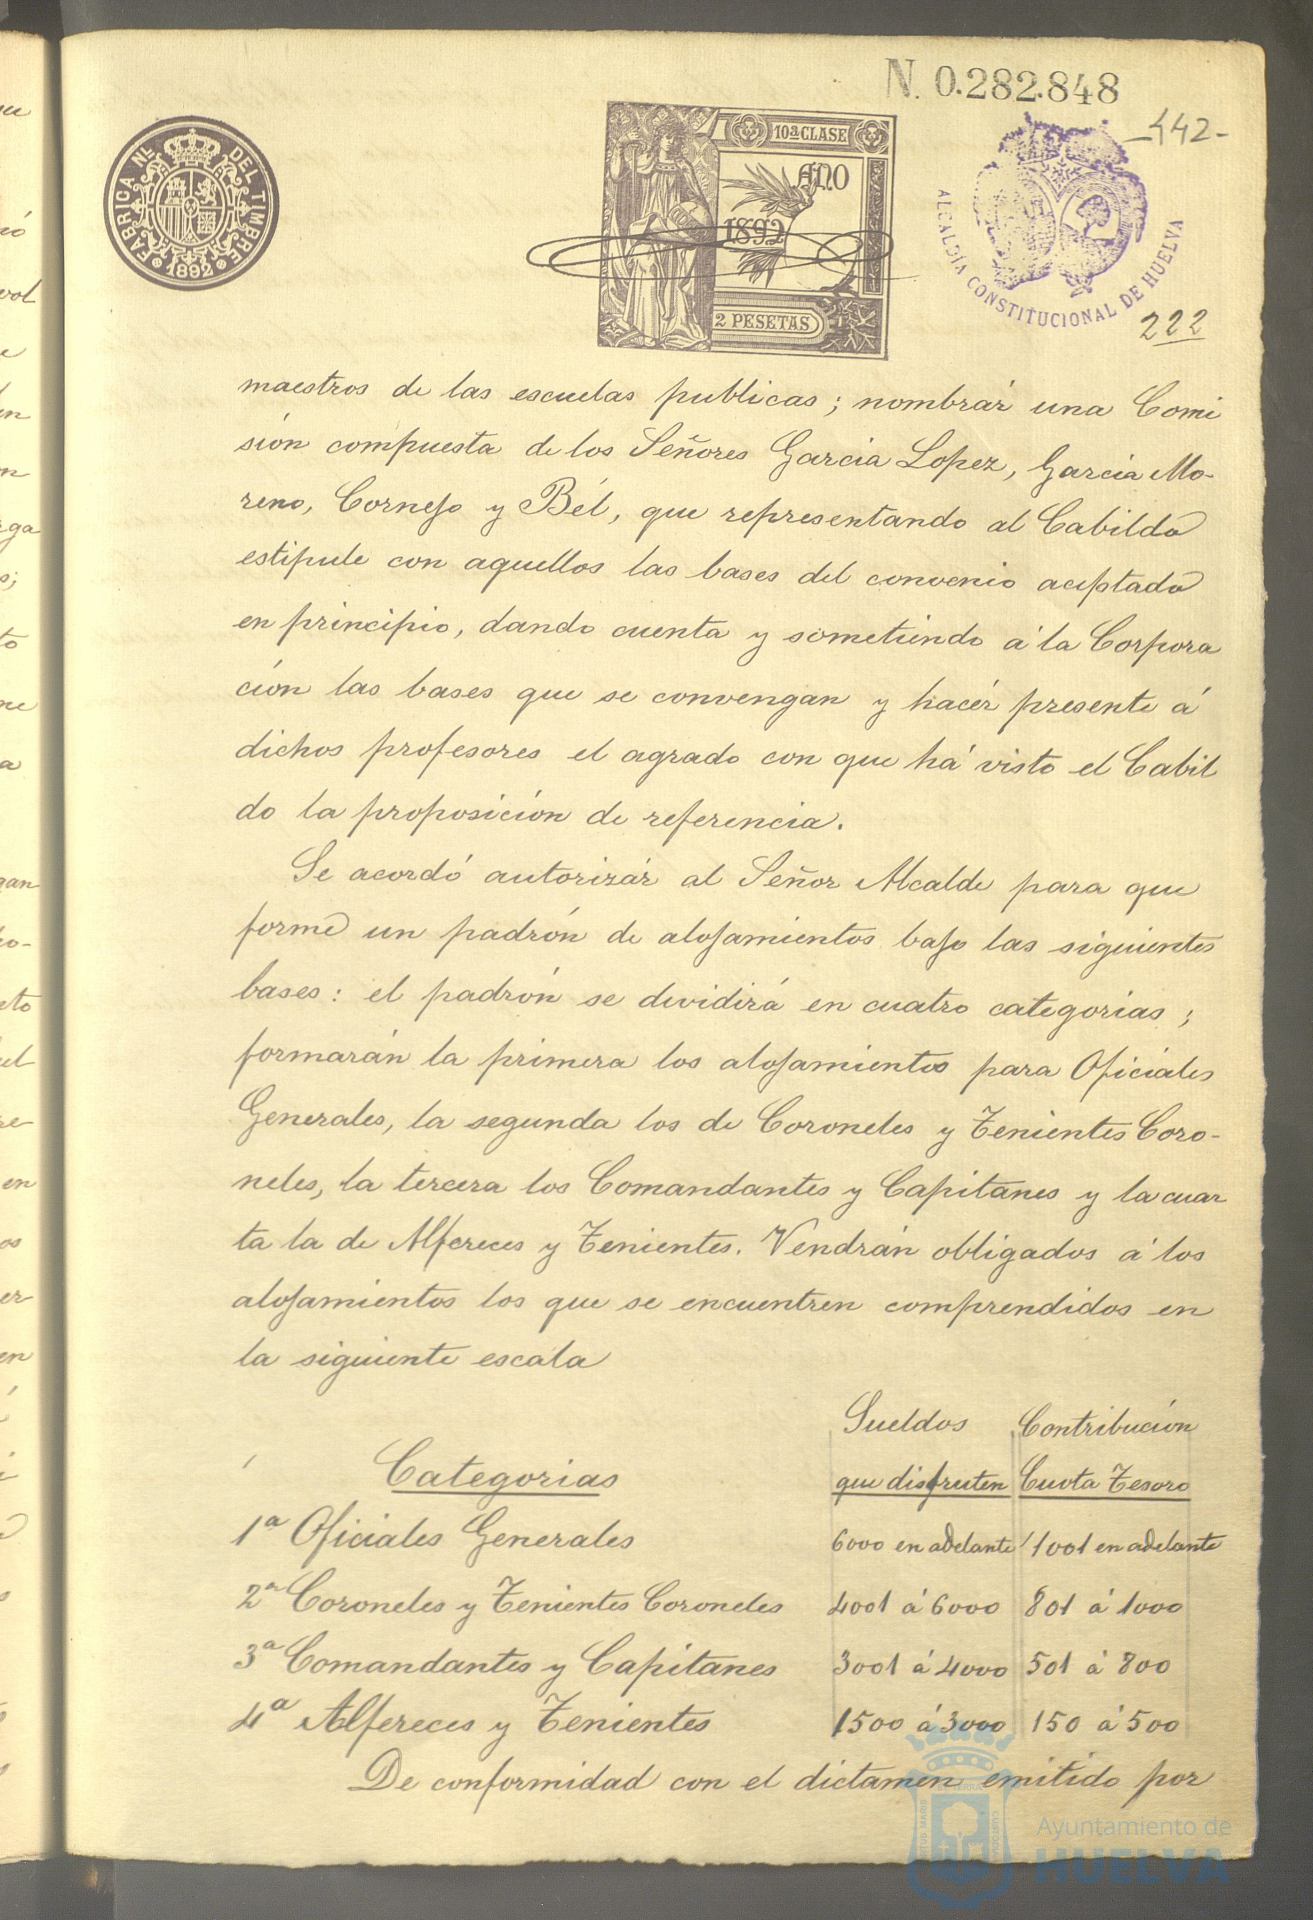 N. 0.282.848
-442-
FABRICA NL. DEL TIMBRE
1892
10ª CLASE
AÑO
1892
2 PESETAS
ALCALDIA CONSTITUCIONAL DE HUELVA
222
maestros de las escuelas publicas; nombrár una Comi
sión compuesta de los Señores García Lopez, García Mo-
reno, Cornejo y Bél, que representando al Cabildo
estipule con aquellos las bases del convenio aceptado
en principio, dando cuenta y sometiendo á la Corpora
ción las bases que se convengan y hacér presente á
dichos profesores el agrado con que há visto el Cabil
do la proposición de referencia.
Se acordó autorizár al Señor Alcalde para que
forme un padrón de alojamientos bajo las siguientes
bases: el padrón se dividirá en cuatro categorías;
formarán la primera los alojamientos para Oficiales
Generales, la segunda los de Coroneles y Tenientes Coro-
neles, la tercera los Comandantes y Capitanes y la cuar
ta la de Alfereces y Tenientes. Vendrán obligados á los
alojamientos los que se encuentren comprendidos en
la siguiente escala
Sueldos Contribución
Categorias que disfruten Cuota Tesoro
1ª Oficiales Generales 6000 en adelante 1001 en adelante
2ª Coroneles y Tenientes Coroneles 4001 á 6000 801 á 1000
3ª Comandantes y Capitanes 3001 á 4000 501 á 800
4ª Alfereces y Tenientes 1500 á 3000 150 á 500
De conformidad con el dictamen emitido por
Ayuntamiento de
HUELVA